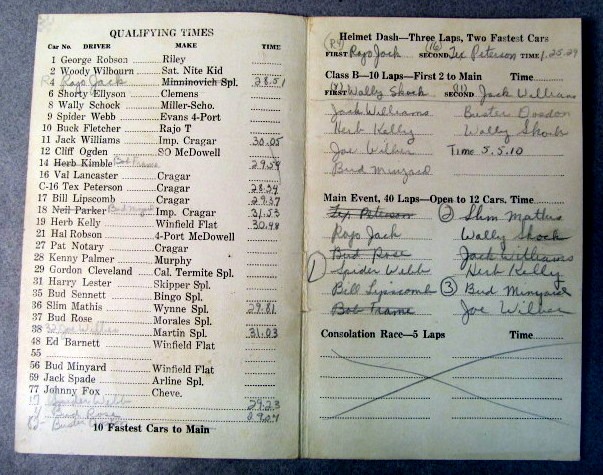 QUALIFYING TIMES
Car No. DRIVER MAKE TIME
1 George Robson Riley
2 Woody Wilbourn Sat. Nite Kid
4 Rajo Jack Miminovich Spl. 28.51
6 Shorty Ellyson Clemens
8 Wally Schock Miller-Scho.
9 Spider Webb Evans 4-Port
10 Buck Fletcher Rajo T
11 Jack Williams Imp. Cragar 30.05
12 Cliff Ogden SO McDowell
14 Herb Kimble Bob Frame 29.54
16 Val Lancaster Cragar
C-16 Tex Peterson Cragar 28.34
17 Bill Lipscomb Cragar 29.37
18 Neil Parker Bud Minyard Imp. Cragar 31.53
19 Herb Kelly Winfield Flat 30.48
21 Hal Robson 4-Port McDowell
27 Pat Notary Cragar
28 Kenny Palmer Murphy
29 Gordon Cleveland Cal. Termite Spl.
31 Harry Lester Skipper Spl.
35 Bud Sennett Bingo Spl.
36 Slim Mathis Wynne Spl. 29.81
37 Bud Rose Morales Spl.
38 Martin Spl. 31.03
48 Ed Barnett Winfield Flat
55
56 Bud Minyard Winfield Flat
69 Jack Spade Arline Spl.
77 Johnny Fox Cheve.
Spider Webb 29.23
Bud Rose
Buster
10 Fastest Cars to Main
Helmet Dash—Three Laps, Two Fastest Cars
FIRST Rajo Jack SECOND Tex Peterson TIME 1.25.29
Class B—10 Laps—First 2 to Main Time
FIRST Wally Shock SECOND Jack Williams
Jack Williams Buster
Herb Kelly Wally Shock
Joe Wilber Time 5.5.10
Bud Minyard
Main Event, 40 Laps—Open to 12 Cars. Time
Tex Peterson 2 Slim Mathis
Rajo Jack Wally Shock
Bud Rose Jack Williams
1 Spider Webb Herb Kelly
Bill Lipscomb 3 Bud Minyard
Bob Frame Joe Wilber
Consolation Race—5 Laps Time